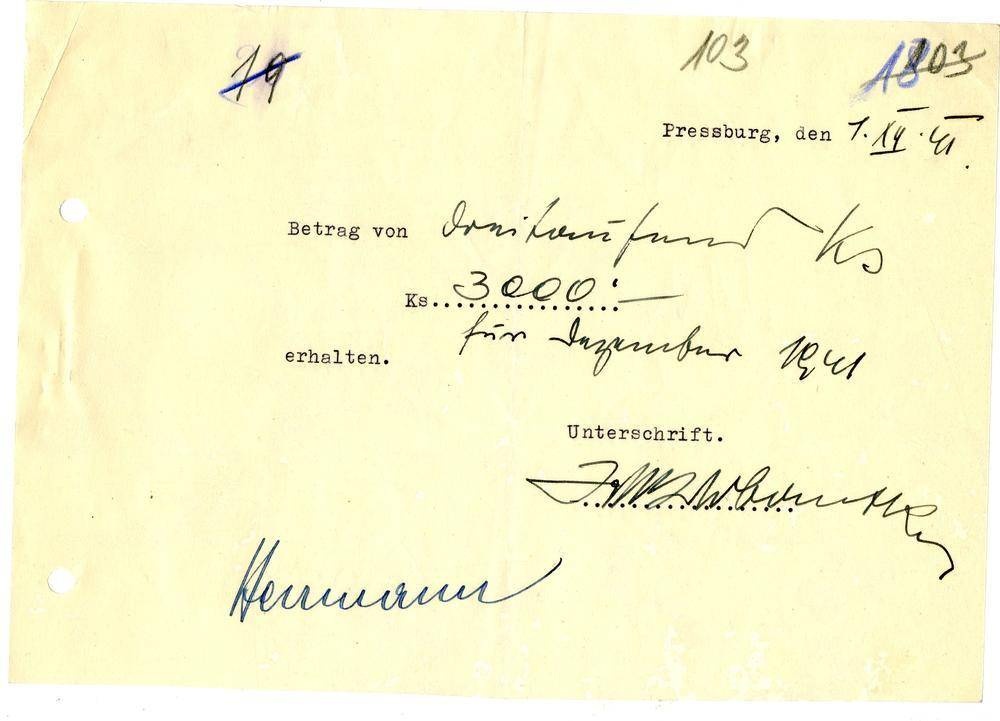 19
103
18 103
Pressburg, den 1. XII. 41.
Betrag von dreitausend Ks
Ks..3000:—
für Dezember 1941
erhalten.
Unterschrift.
Herrmann